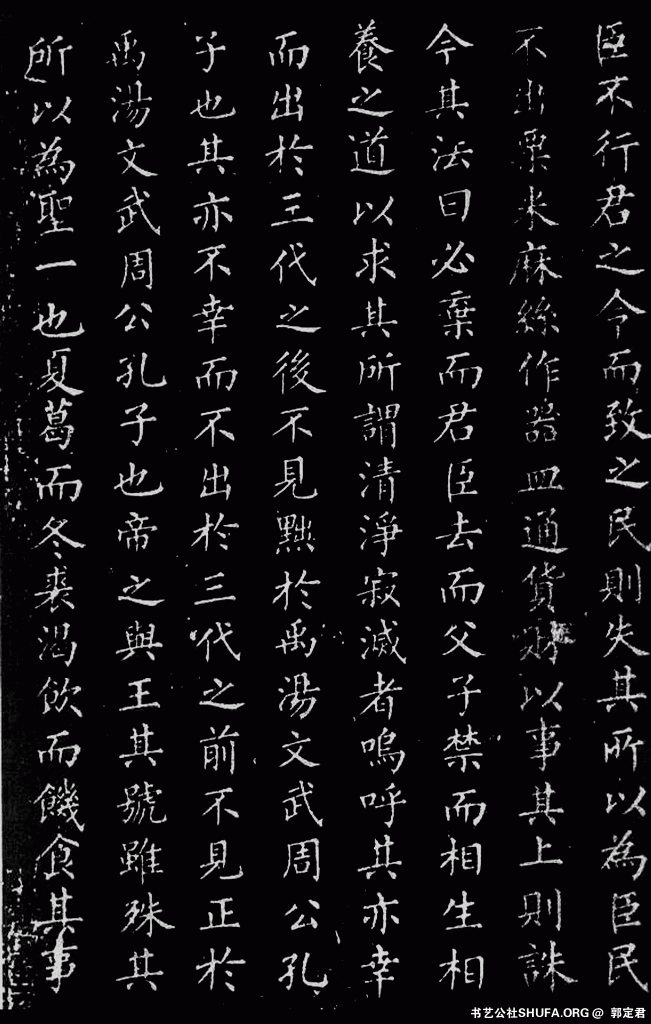 臣不行君之令而致之民則失其所以為臣民
不出粟米麻絲作器皿通貨財以事其上則誅
今其法曰必棄而君臣去而父子禁而相生相
養之道以求其所謂清淨寂滅者嗚呼其亦幸
而出於三代之後不見黜於禹湯文武周公孔
子也其亦不幸而不出於三代之前不見正於
禹湯文武周公孔子也帝之與王其號雖殊其
所以為聖一也夏葛而冬裘渴飲而饑食其事
书艺公社SHUFA.ORG @ 郭定君